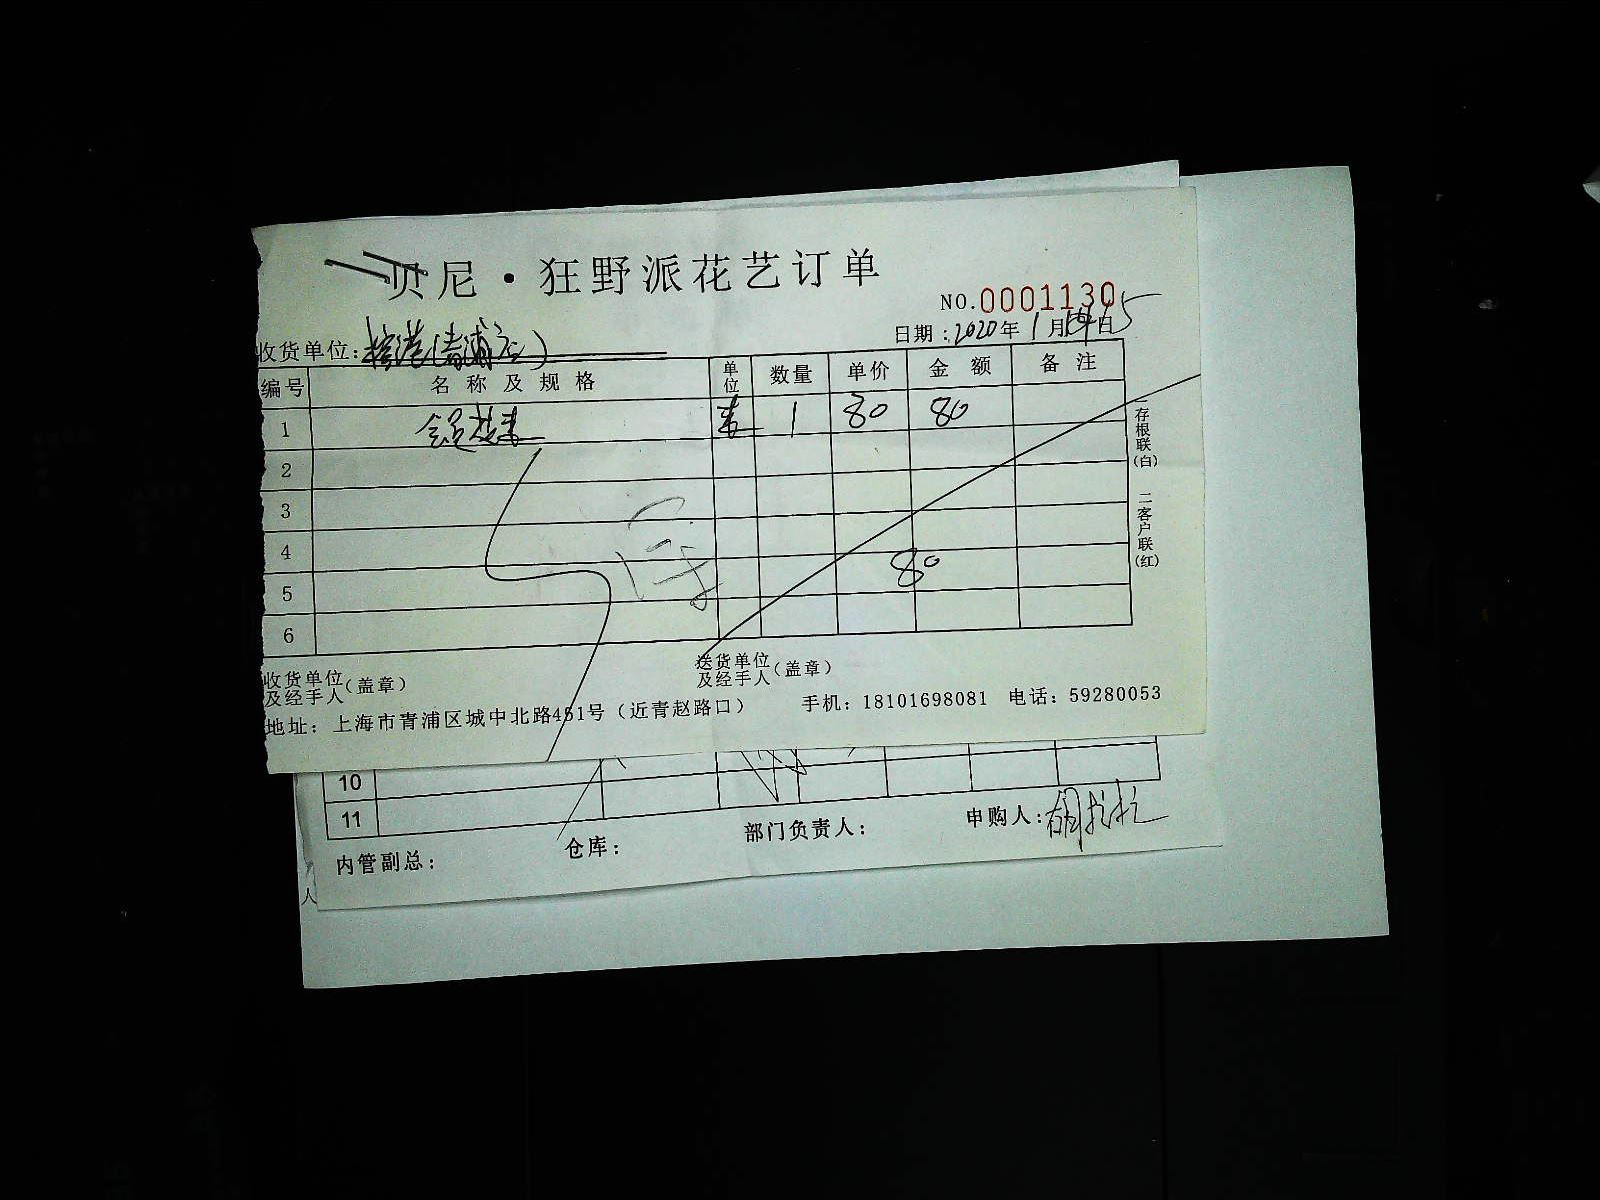 贝尼·狂野派花艺订单
NO.0001130
收货单位： 日期：2020年1月15日
编号 名称及规格 单位 数量 单价 金额 备注
1 束 1 80 80
2
3
4
80
5
6
一存根联(白) 二客户联(红)
收货单位及经手人(盖章) 送货单位及经手人(盖章)
地址：上海市青浦区城中北路451号（近青赵路口） 手机：18101698081 电话：59280053
10
11
内管副总： 仓库： 部门负责人： 申购人：
人